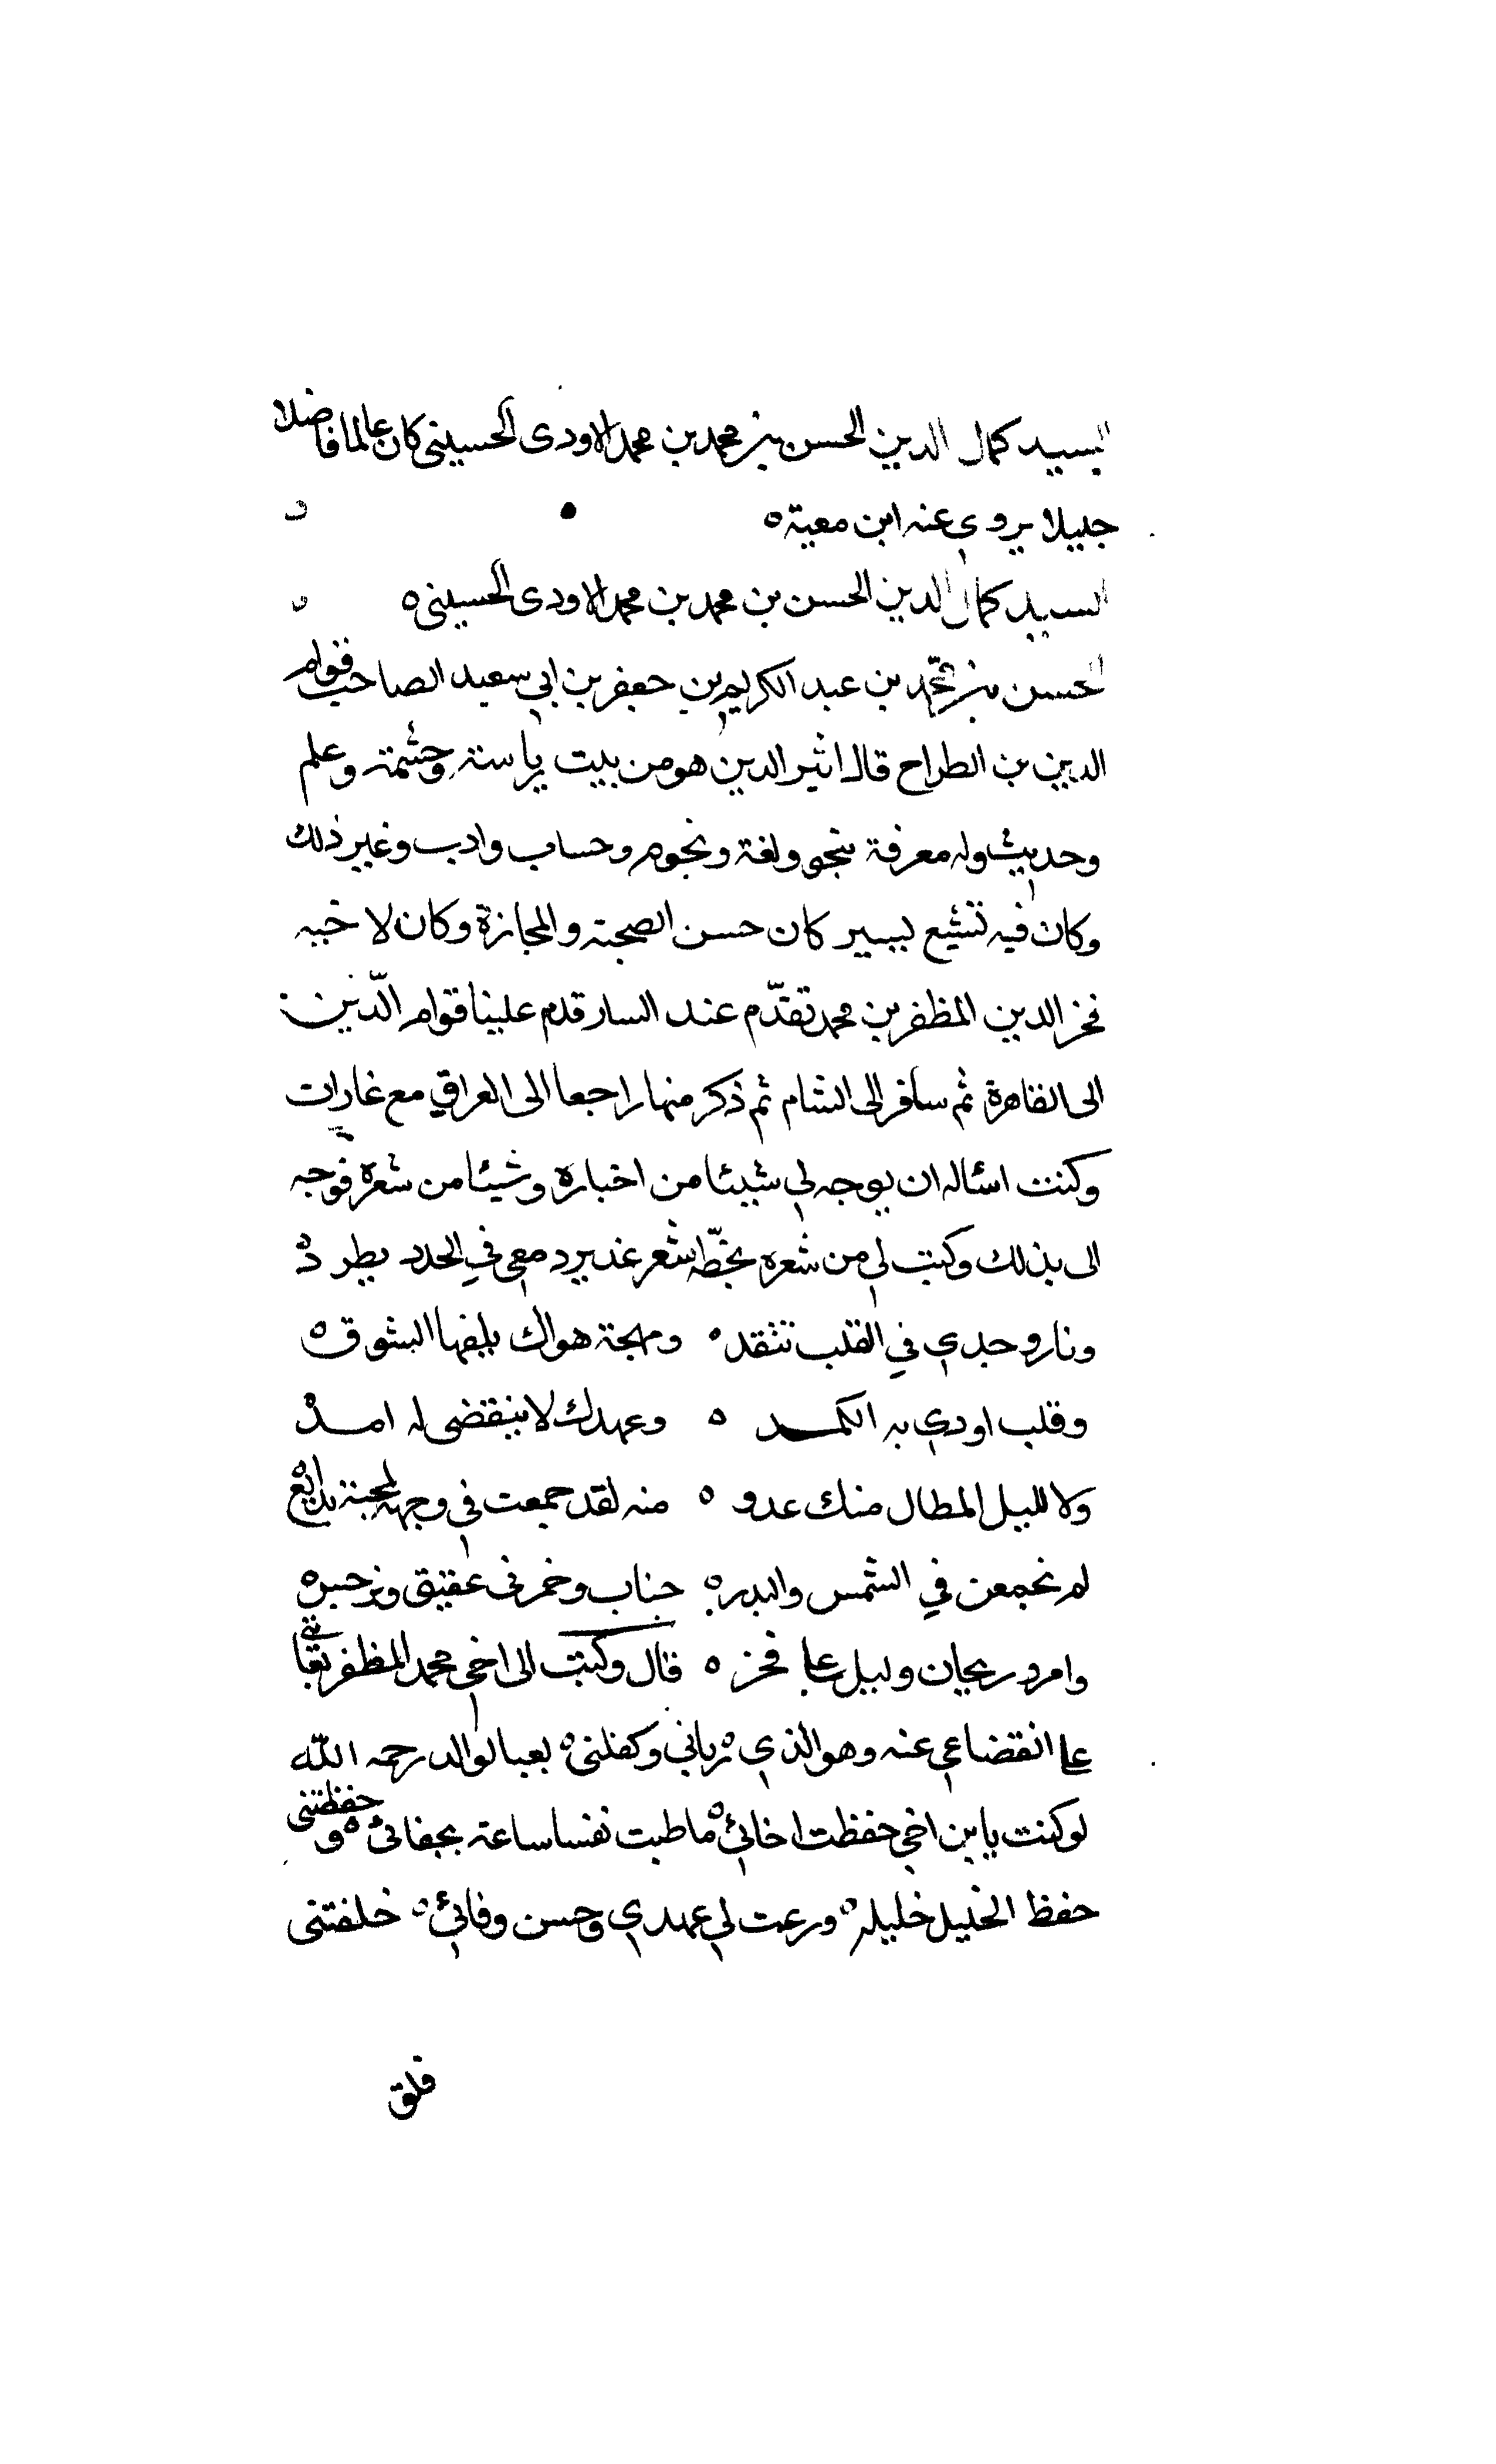 السيد كمال الدين الحسن بن محمد بن محمد الاودى الحسينى كان عالما فاضلا
جليلا يروي عنه ابن معية ه
السيد كمال الدين الحسن بن محمد بن محمد الاودى الحسينى ه
الحسن بن محمّد بن عبد الكريم بن جعفر بن ابي سعيد الصاحب قوام
الدين بن الطراح قال اثير الدين هو من بيت رياسة وحشمة وعلم
وحديث وله معرفة بنحو ولغة ونجوم وحساب وادب وغير ذلك
وكان فيه تشيع يسير كان حسن الصحبة والمجازة وكان لا خيه
فخر الدين المظفر بن محمد تقدّم عند السار قدم علينا قوام الدّين
الى القاهرة ثم سافر الى الشام ثم ذكر منها راجعا الى العراق مع غارات
وكنت اسئاله ان يوجه لي شيئا من اخباره وشيئا من شعره فوجه
الى بذلك وكتب لي من شعره بخطّه شعر غدير دمعي في الخدد يطرد ه
ونار وجدي في القلب تتقد ه ومهجة هواك يلفها الشوق ه
وقلب اودي به الكمد ه وعهدك لا ينقضى له امد ه
ولا لليل المطال منك عدو ه منه لقد جمعت في وجهه لمحبة بدايع
لم نجمعن في الشمس والبدر ه حباب وخمر فى عقيق ونرجس ه
وامرد ريحان وليل على فخر ه قال وكتبت الى اخي محمد المظفر يعاتبني
على انقضاعي عنه وهو الذي رباني وكفلنى ه بعبا لوالد رحمه الله
لو كنت يابن اخي حفظت اخائي ه ما طبت نفسا ساعة بجفائي ه وحفظتنى
حفظ الخليل خليله ه ورعت لي عهدي وحسن وفائي ه خلفتنى
قلق